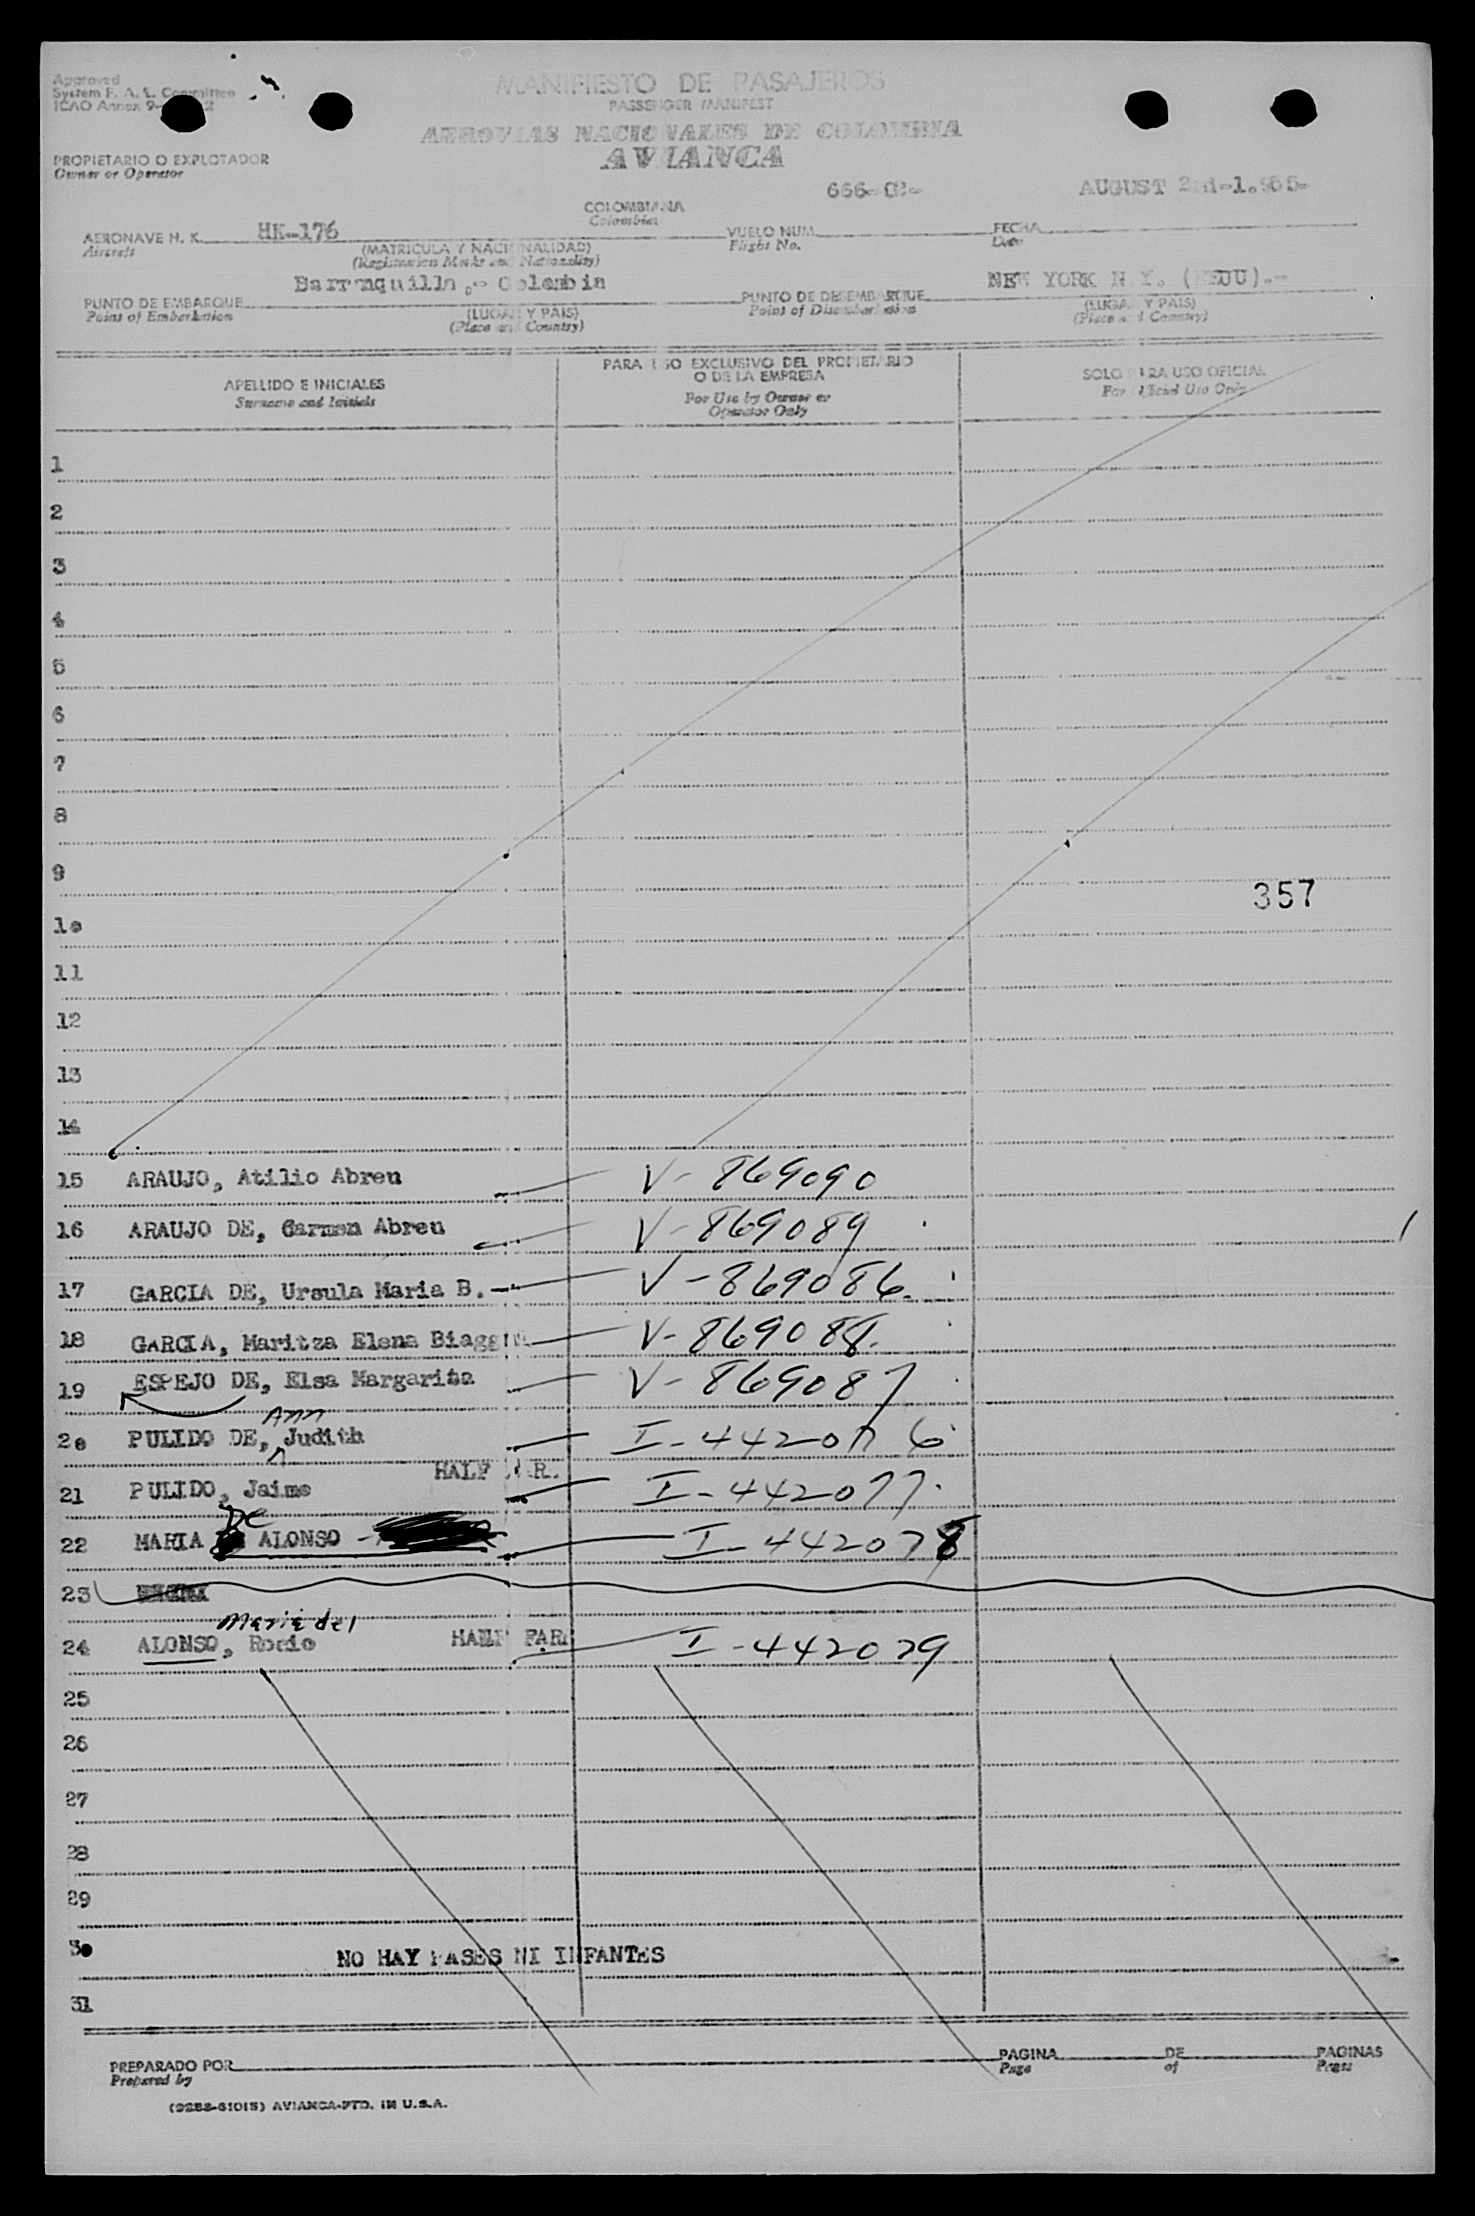 Approved
System F. A. L. Committee
ICAO Annex 9-
MANIFIESTO DE PASAJEROS
PASSENGER MANIFEST
AEROVIAS NACIONALES DE COLOMBIA
AVIANCA
PROPIETARIO O EXPLOTADOR
Owner or Operator
666- AUGUST 2nd-1.955-
COLOMBIANA
Colombian
AERONAVE H. K. HK-176 VUELO NUM. FECHA
Aircraft (MATRICULA Y NACIONALIDAD) Flight No. Date
(Registration Marks and Nationality)
Barranquilla.- Colombia NEW YORK N Y. (EEUU).-
PUNTO DE EMBARQUE PUNTO DE DESEMBARQUE
Point of Embarkation (LUGAR Y PAIS) Point of Disembarkation (LUGAR Y PAIS)
(Place and Country) (Place and Country)
APELLIDO E INICIALES PARA USO EXCLUSIVO DEL PROPIETARIO SOLO PARA USO OFICIAL
Surname and Initials O DE LA EMPRESA For Official Use Only
For Use by Owner or
Operator Only
1
2
3
4
5
6
7
8
9
357
10
11
12
13
14
15 ARAUJO, Atilio Abreu V-869090
16 ARAUJO DE, Carmen Abreu V-869089
17 GARCIA DE, Ursula Maria B.- V-869086.
18 GARCIA, Maritza Elena Biaggi V-869088.
19 ESPEJO DE, Elsa Margarita V-869087
Ann
20 PULIDO DE, Judith I-442076
HALF
21 PULIDO, Jaime I-442077.
De
22 MARIA ALONSO I-442078
23
Maria del
24 ALONSO, Rocio HALF FAR I-442079
25
26
27
28
29
30 NO HAY PASES NI INFANTES
31
PREPARADO POR PAGINA DE PAGINAS
Prepared by Page of Pages
(9288-61015) AVIANCA-PTD. IN U.S.A.